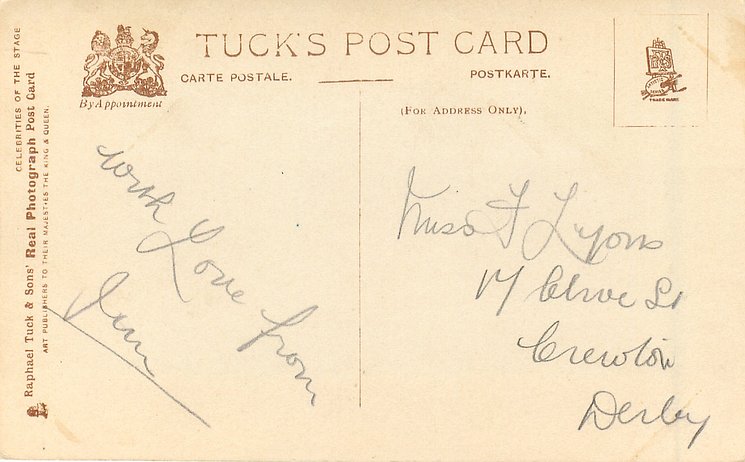 TUCK'S POST CARD
CARTE POSTALE.
POSTKARTE.
By Appointment
(FOR ADDRESS ONLY).
TRADE MARK
CELEBRITIES OF THE STAGE
Raphael Tuck & Sons' Real Photograph Post Card
ART PUBLISHERS TO THEIR MAJESTIES THE KING & QUEEN.
With
Love from
Jim
Miss F Lyons
17 Clive St
Crewton
Derby